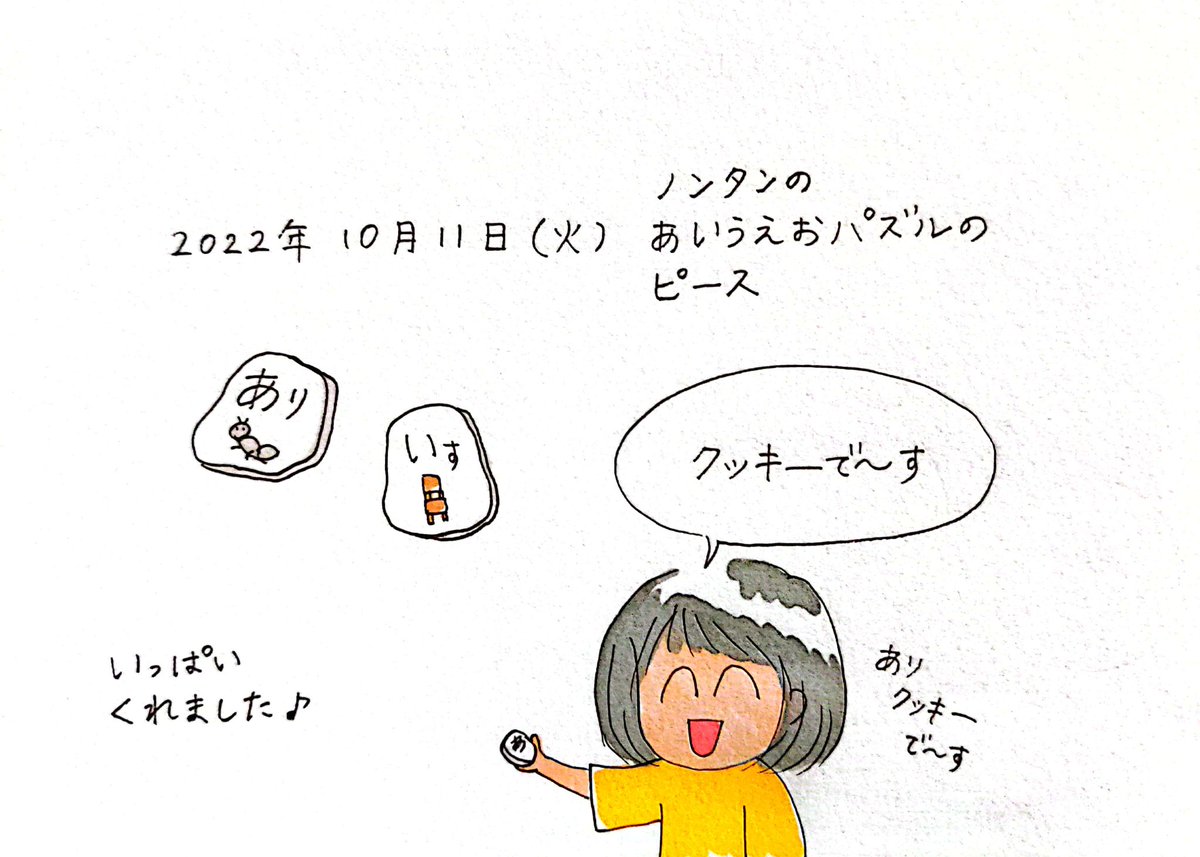 2022年 10月11日(火)
ノンタンの
あいうえおパズルの
ピース
あり
いす
クッキーで〜す
いっぱい
くれました♪
あ
あり
クッキー
で〜す